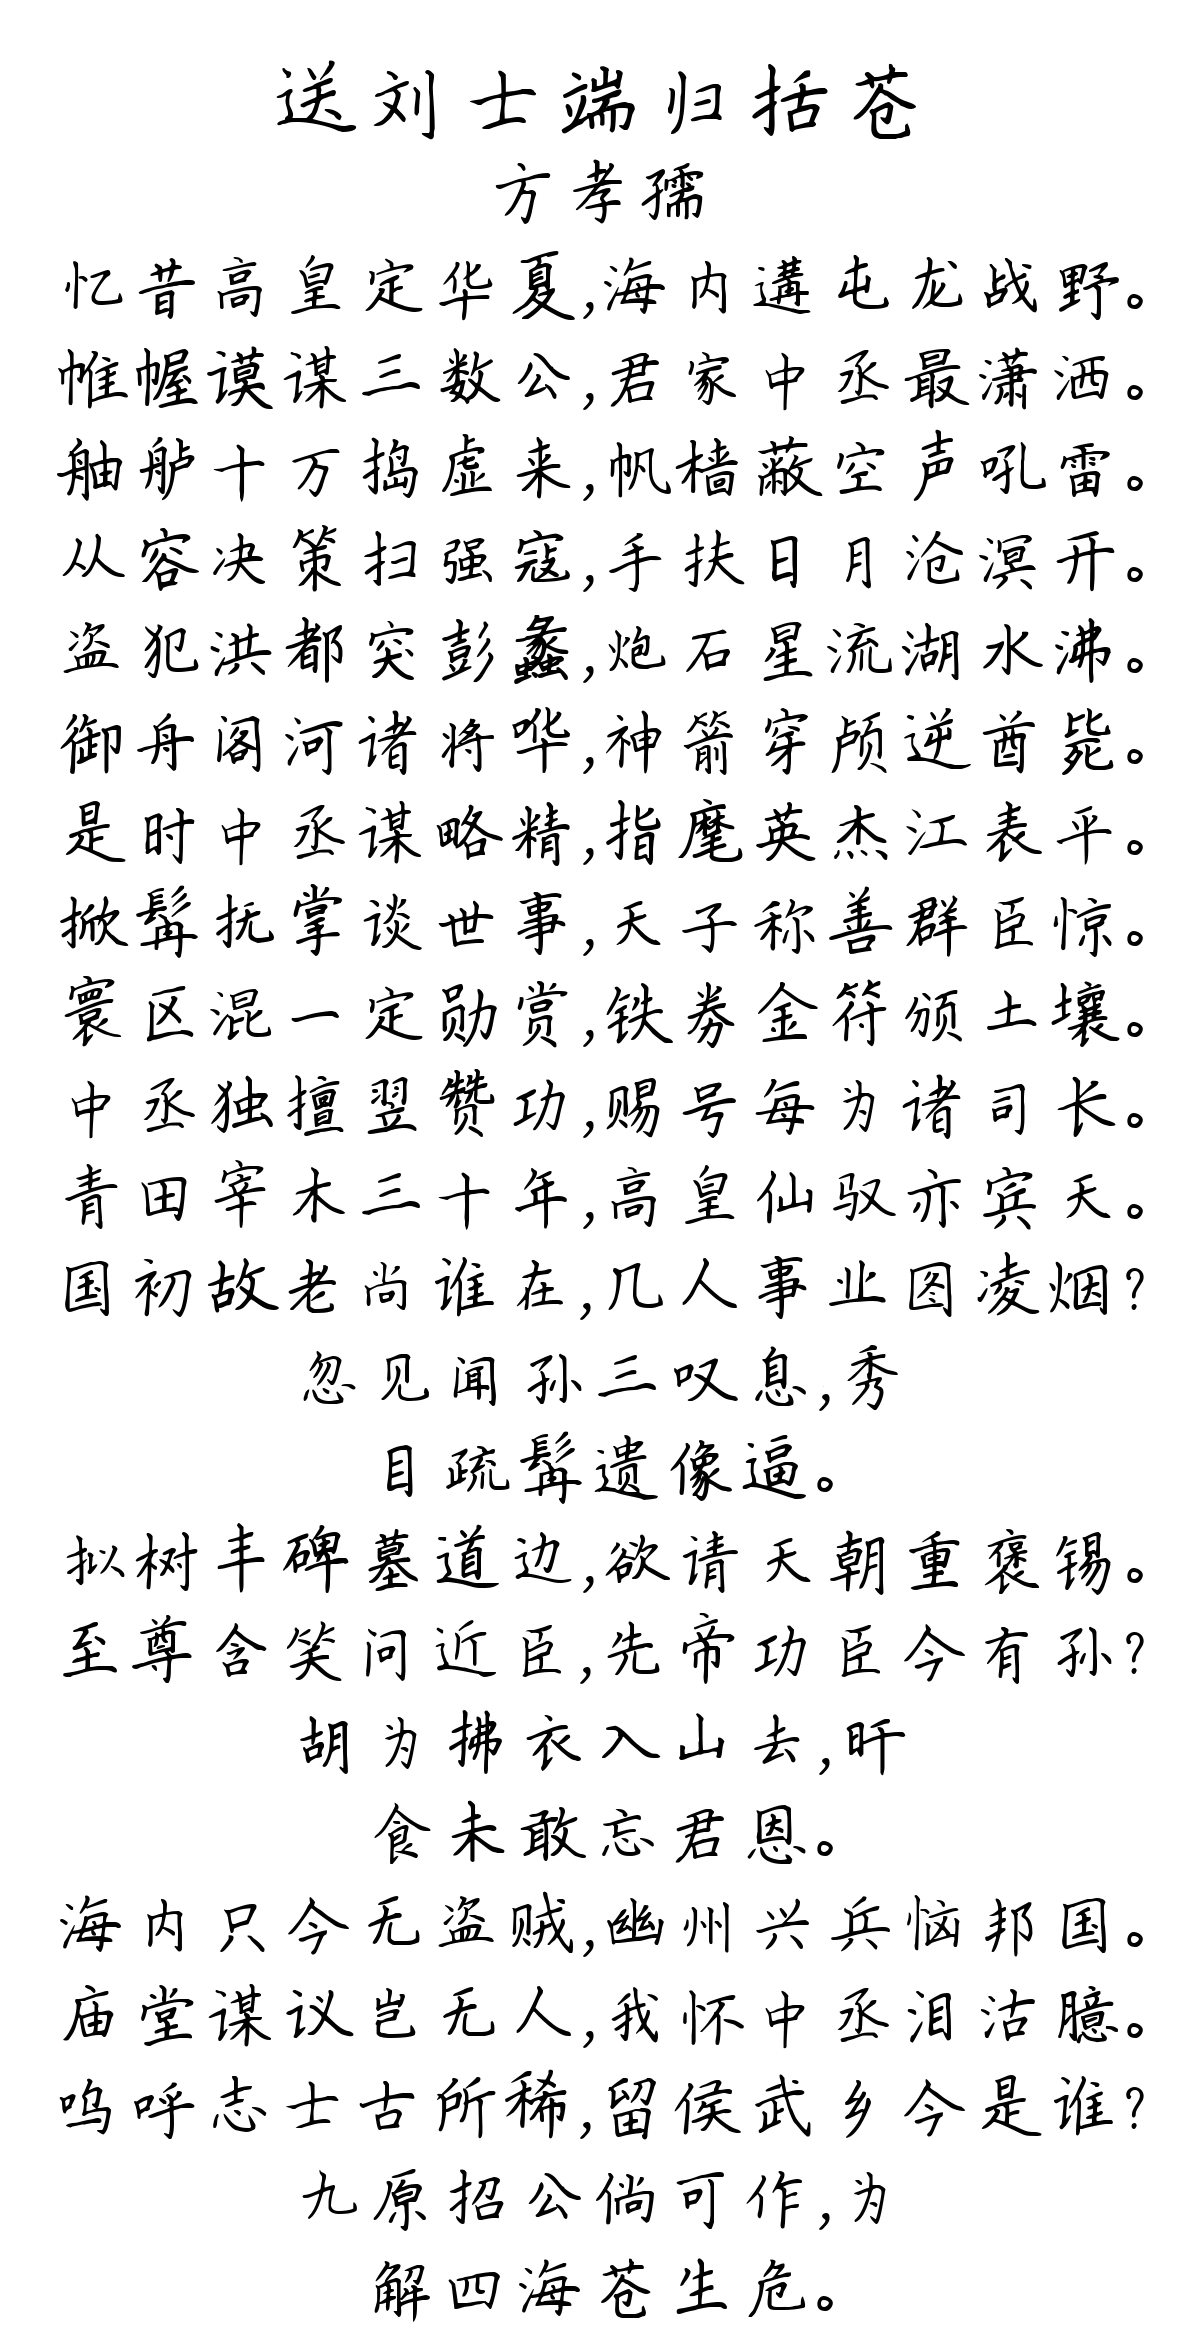 送刘士端归括苍
方孝孺
忆昔高皇定华夏,海内遘屯龙战野。
帷幄谟谋三数公,君家中丞最潇洒。
舳舻十万捣虚来,帆樯蔽空声吼雷。
从容决策扫强寇,手扶日月沧溟开。
盗犯洪都突彭蠡,炮石星流湖水沸。
御舟阁河诸将哗,神箭穿颅逆酋毙。
是时中丞谋略精,指麾英杰江表平。
掀髯抚掌谈世事,天子称善群臣惊。
寰区混一定勋赏,铁券金符颁土壤。
中丞独擅翌赞功,赐号每为诸司长。
青田宰木三十年,高皇仙驭亦宾天。
国初故老尚谁在,几人事业图凌烟?
忽见闻孙三叹息,秀
目疏髯遗像逼。
拟树丰碑墓道边,欲请天朝重褒锡。
至尊含笑问近臣,先帝功臣今有孙?
胡为拂衣入山去,旰
食未敢忘君恩。
海内只今无盗贼,幽州兴兵恼邦国。
庙堂谋议岂无人,我怀中丞泪沾臆。
呜呼志士古所稀,留侯武乡今是谁?
九原招公倘可作,为
解四海苍生危。